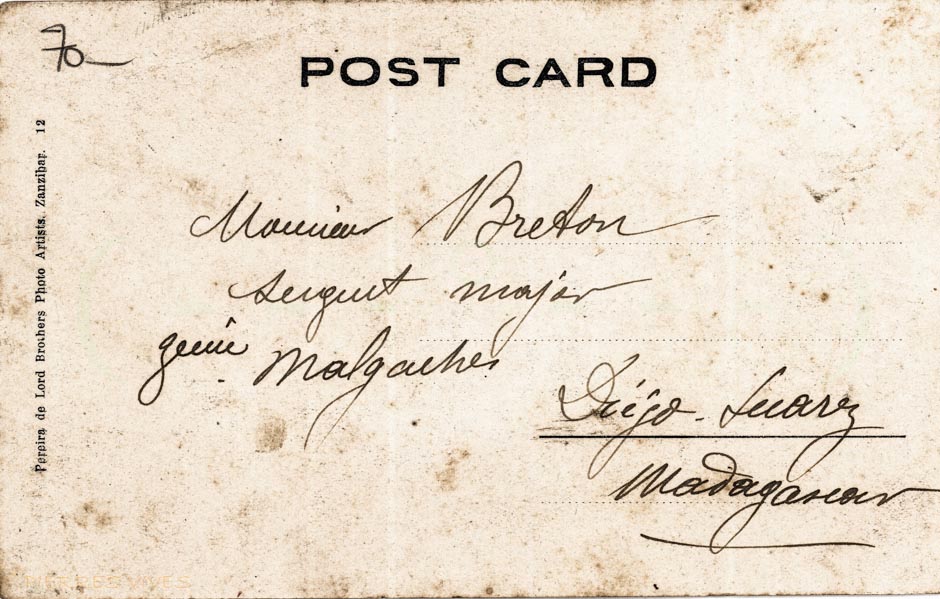 70
POST CARD
Pereira de Lord Brothers Photo Artists. Zanzibar. 12
Monsieur Breton
sergent major
génie Malgaches
Diégo-Suarez
Madagascar